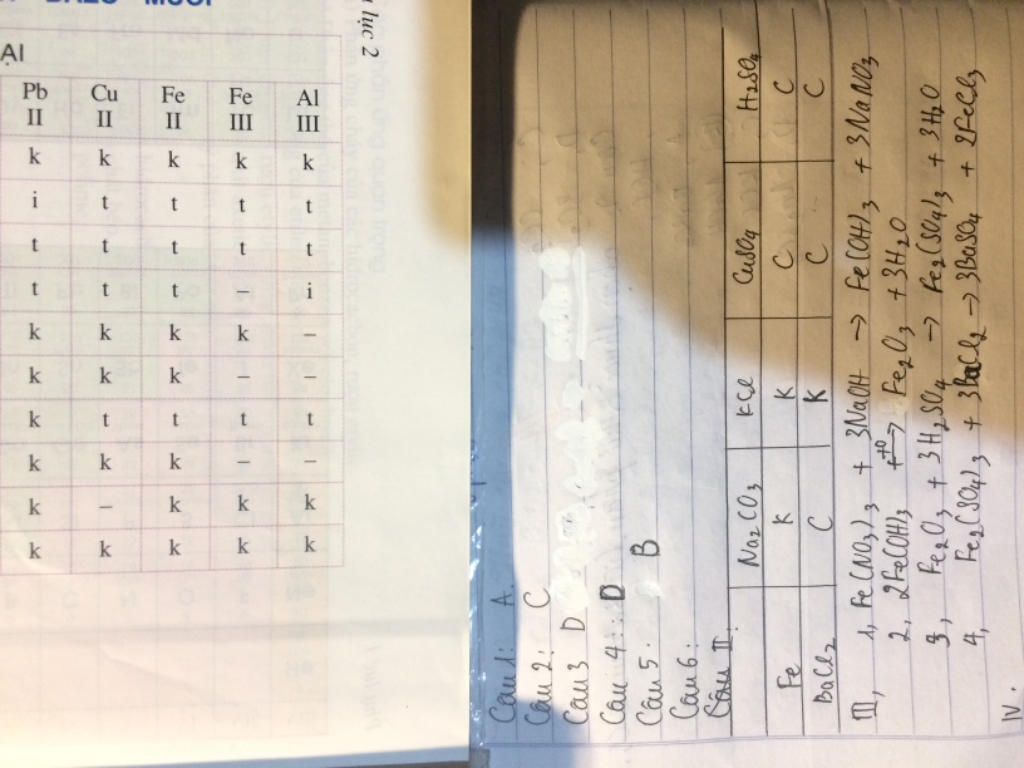 BAZƠ MUỐI
lục 2
Al
Pb Cu Fe Fe Al
II II II III III
k k k k k
i t t t t
t t t t t
t t t – i
k k k k –
k k k – –
k t t t t
k k k – –
k – k k k
k k k k k
Câu 1: A.
Câu 2: C
Câu 3 D
Câu 4: D
Câu 5. B
Câu 6:
Câu II.
Na2CO3 KCl CuSO4 H2SO4
Fe K K C C
BaCl2 C K C C
III, 1, Fe(NO3)3 + 3NaOH -> Fe(OH)3 + 3NaNO3
2, 2Fe(OH)3 t° -> Fe2O3 + 3H2O
3, Fe2O3 + 3H2SO4 -> Fe2(SO4)3 + 3H2O
4, Fe2(SO4)3 + 3BaCl2 -> 3BaSO4 + 2FeCl3
IV.